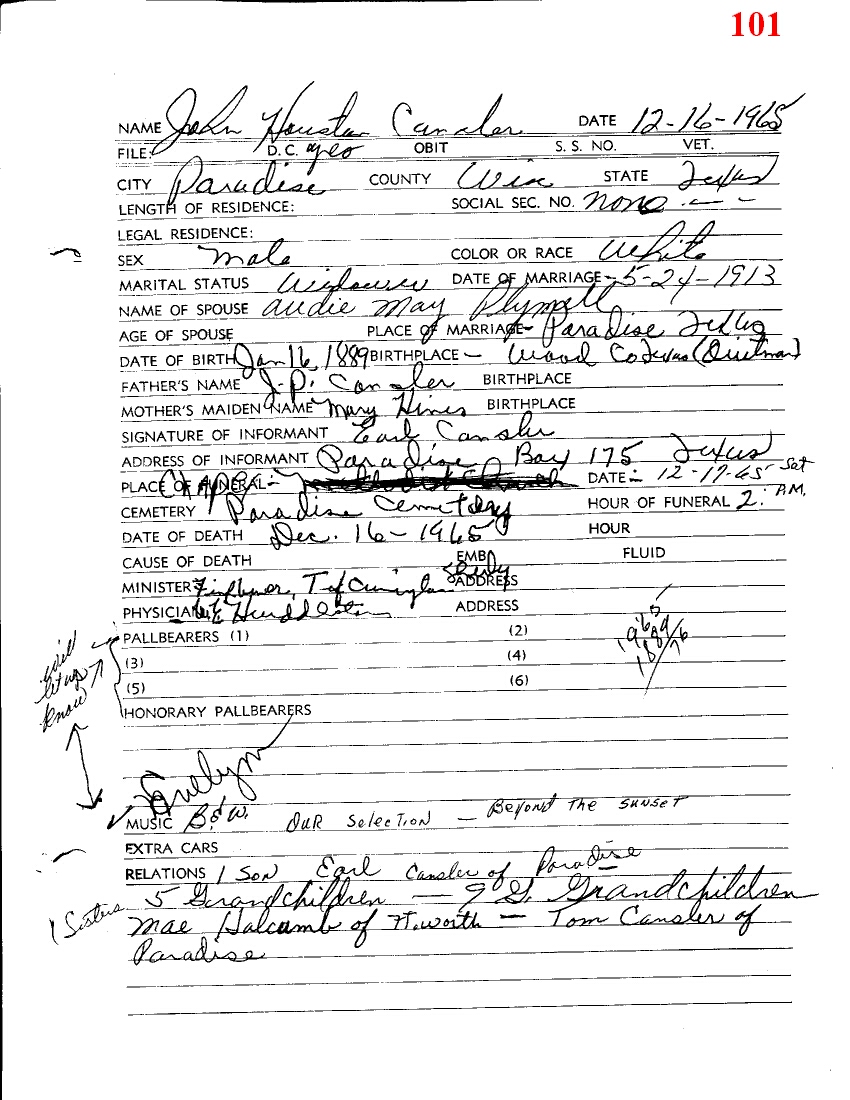 101
NAME John Houston Cansler DATE 12-16-1965
FILE: D.C. yes OBIT S. S. NO. VET.
CITY Paradise COUNTY Wise STATE Texas
LENGTH OF RESIDENCE: SOCIAL SEC. NO. none - - -
LEGAL RESIDENCE:
SEX Male COLOR OR RACE White
MARITAL STATUS Widower DATE OF MARRIAGE- 5-24-1913
NAME OF SPOUSE Audie May Plymell
AGE OF SPOUSE PLACE OF MARRIAGE- Paradise Texas
DATE OF BIRTH Jan 16, 1889 BIRTHPLACE - Wood Co Texas (Quitman)
FATHER'S NAME J. P. Cansler BIRTHPLACE
MOTHER'S MAIDEN NAME Mary Hines BIRTHPLACE
SIGNATURE OF INFORMANT Earl Cansler
ADDRESS OF INFORMANT Paradise Box 175 Texas
PLACE OF FUNERAL- Chapel DATE - 12-17-65 Sat
CEMETERY Paradise Cemetery HOUR OF FUNERAL 2: P.M.
DATE OF DEATH Dec. 16-1965 HOUR
CAUSE OF DEATH EMB FLUID
MINISTER ADDRESS
PHYSICIAN Huddleston ADDRESS
PALLBEARERS (1) (2)
1965
1889/76
will let us know
(3) (4)
(5) (6)
HONORARY PALLBEARERS
Evelyn
MUSIC B&W. OUR SELECTION - BEYOND THE SUNSET
EXTRA CARS
RELATIONS 1 Son Earl Cansler of Paradise
5 Grandchildren - 9 G. Grandchildren
1 Sisters Mae Halcumb of Ft. Worth - Tom Cansler of
Paradise